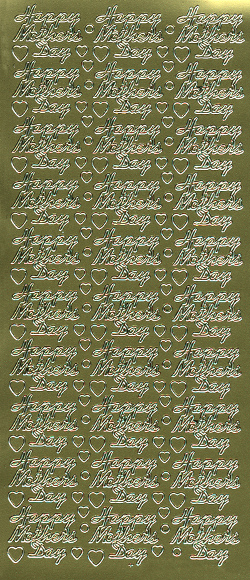 Happy Happy Happy
Mothers Mothers Mothers
Day Day Day
Happy Happy Happy
Mothers Mothers Mothers
Day Day Day
Happy Happy Happy
Mothers Mothers Mothers
Day Day Day
Happy Happy Happy
Mothers Mothers Mothers
Day Day Day
Happy Happy Happy
Mothers Mothers Mothers
Day Day Day
Happy Happy Happy
Mothers Mothers Mothers
Day Day Day
Happy Happy Happy
Mothers Mothers Mothers
Day Day Day
Happy Happy Happy
Mothers Mothers Mothers
Day Day Day
Happy Happy Happy
Mothers Mothers Mothers
Day Day Day
Happy Happy Happy
Mothers Mothers Mothers
Day Day Day